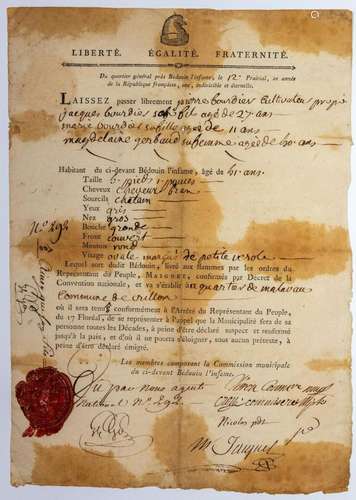 LIBERTÉ. ÉGALITÉ. FRATERNITÉ.
Du quartier général près Bédouin l'infame, le 12e Prairial, 2e année
de la République françaiſe, une, indiviſible et éternelle.
LAISSEZ paſſer librement andré bourdier Cultivateur
jacques bourdier son fils agé de 27 ans
marie bourdier sa fille agée de 11 ans
magdelaine gerbaud sa femme agée de 60 ans
Habitant du ci-devant Bédouin l'infame, âgé de 61 ans
Taille 5 pieds 1 pouces
Cheveux cheveux brun
Sourcils chatain
Yeux gris
Nez gros
Bouche grande
Front couvert
Menton rond
Viſage ovale marqué de petite verole
No 292
Lequel ſort dudit Bédouin, livré aux flammes par les ordres du
Repréſentant du Peuple, MAIGNET, confirmés par Décret de la
Convention nationale, et va s'établir au quartier de malavau
Commune de crillon
où il ſera tenu conformément à l'Arrêté du Repréſentant du Peuple,
du 17 Floréal, de ſe repréſenter à l'Appel que la Municipalité fera de ſa
perſonne toutes les Décades, à peine d'être déclaré ſuſpect et renfermé
juſqu'à la paix, et d'où il ne pourra s'éloigner, ſous aucun prétexte, à
peine d'être déclaré émigré.
Les membres compoſant la Commiſſion municipale
du ci-devant Bédouin l'infame.
Vu par nous agent
national No 292
Nicolas
Jacques